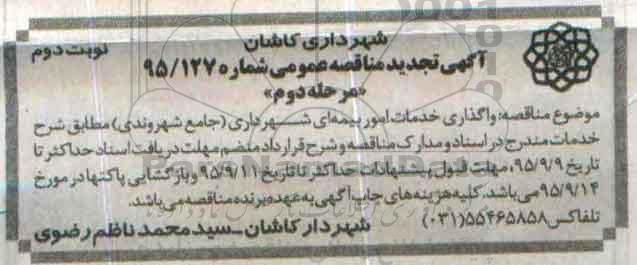 شهرداری کاشان
نوبت دوم
آگهی تجدید مناقصه عمومی شماره ۹۵/۱۲۷
«مرحله دوم»
موضوع مناقصه: واگذاری خدمات امور بیمه‌ای شهرداری (جامع شهروندی) مطابق شرح
خدمات مندرج در اسناد و مدارک مناقصه و شرح قرارداد منضم مهلت دریافت اسناد حداکثر تا
تاریخ ۹۵/۹/۹، مهلت قبول پیشنهادات حداکثر تا تاریخ ۹۵/۹/۱۱ و بازگشایی پاکتها در مورخ
۹۵/۹/۱۴ می باشد. کلیه هزینه های چاپ آگهی به عهده برنده مناقصه می باشد.
تلفاکس ۵۵۴۶۵۸۵۸(۰۳۱)
شهردار کاشان ـ سید محمد ناظم رضوی